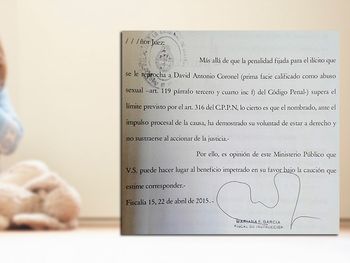 ///ñor Juez:
Más allá de que la penalidad fijada para el ilícito que
se le reprocha a David Antonio Coronel (prima facie calificado como abuso
sexual –art. 119 párrafo tercero y cuarto inc f) del Código Penal-) supera el
límite previsto por el art. 316 del C.P.P.N, lo cierto es que el nombrado, ante el
impulso procesal de la causa, ha demostrado su voluntad de estar a derecho y
no sustraerse al accionar de la justicia.-
Por ello, es opinión de este Ministerio Público que
V.S. puede hacer lugar al beneficio impetrado en su favor bajo la caución que
estime corresponder.-
Fiscalía 15, 22 de abril de 2015.-
GARCIA
FISCAL DE INSTRUCCION